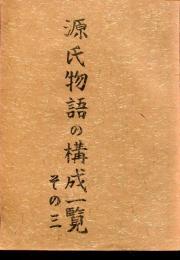 源氏物語の構成一覧
その三